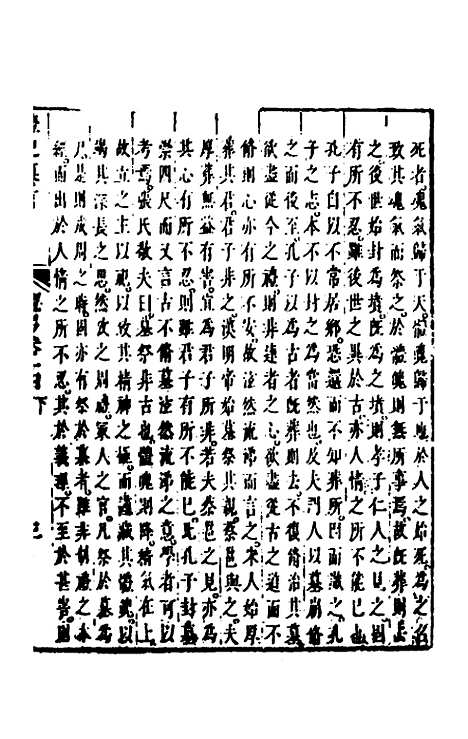 死者魂氣歸于天體魄歸于地於人之始死為之
致其魂氣而祭之於體魄則無所事焉故既葬則
之後世始封為墳既為之墳則孝子仁人之見之固
有所不忍雖後世之異於古亦人情之所不能已也
孔子自以不常居鄉恐還而不知葬所因而識之孔
子之志本不以封之為當然也及夫門人以墓崩脩
之而後至孔子以古者既葬則去不復脩治其墓
欲盡從今之禮則非達者之心欲盡從古之道而不
脩則心亦有所不安故泫然流涕而言之宋人始厚
葬其君君子非之漢明帝始墓祭其親蔡邕與之夫
厚葬無益有害宜為君子所非若夫蔡邕之見亦為
其心有所不忍則雖君子有所不能已見孔子封墓
崇四尺而又言古不脩墓泫然流涕之意學者可以
考焉張氏敬夫曰墓祭非古也體魄則降精氣在上
故立之主以祀以致其精神之極而謹藏其體魄以
竭其深長之思然攷之周禮冢人之官凡祭於墓為
尸是則成周之時固亦有祭於墓者雖非制禮之本
經而出於人情之所不忍其於義理不至於甚害則